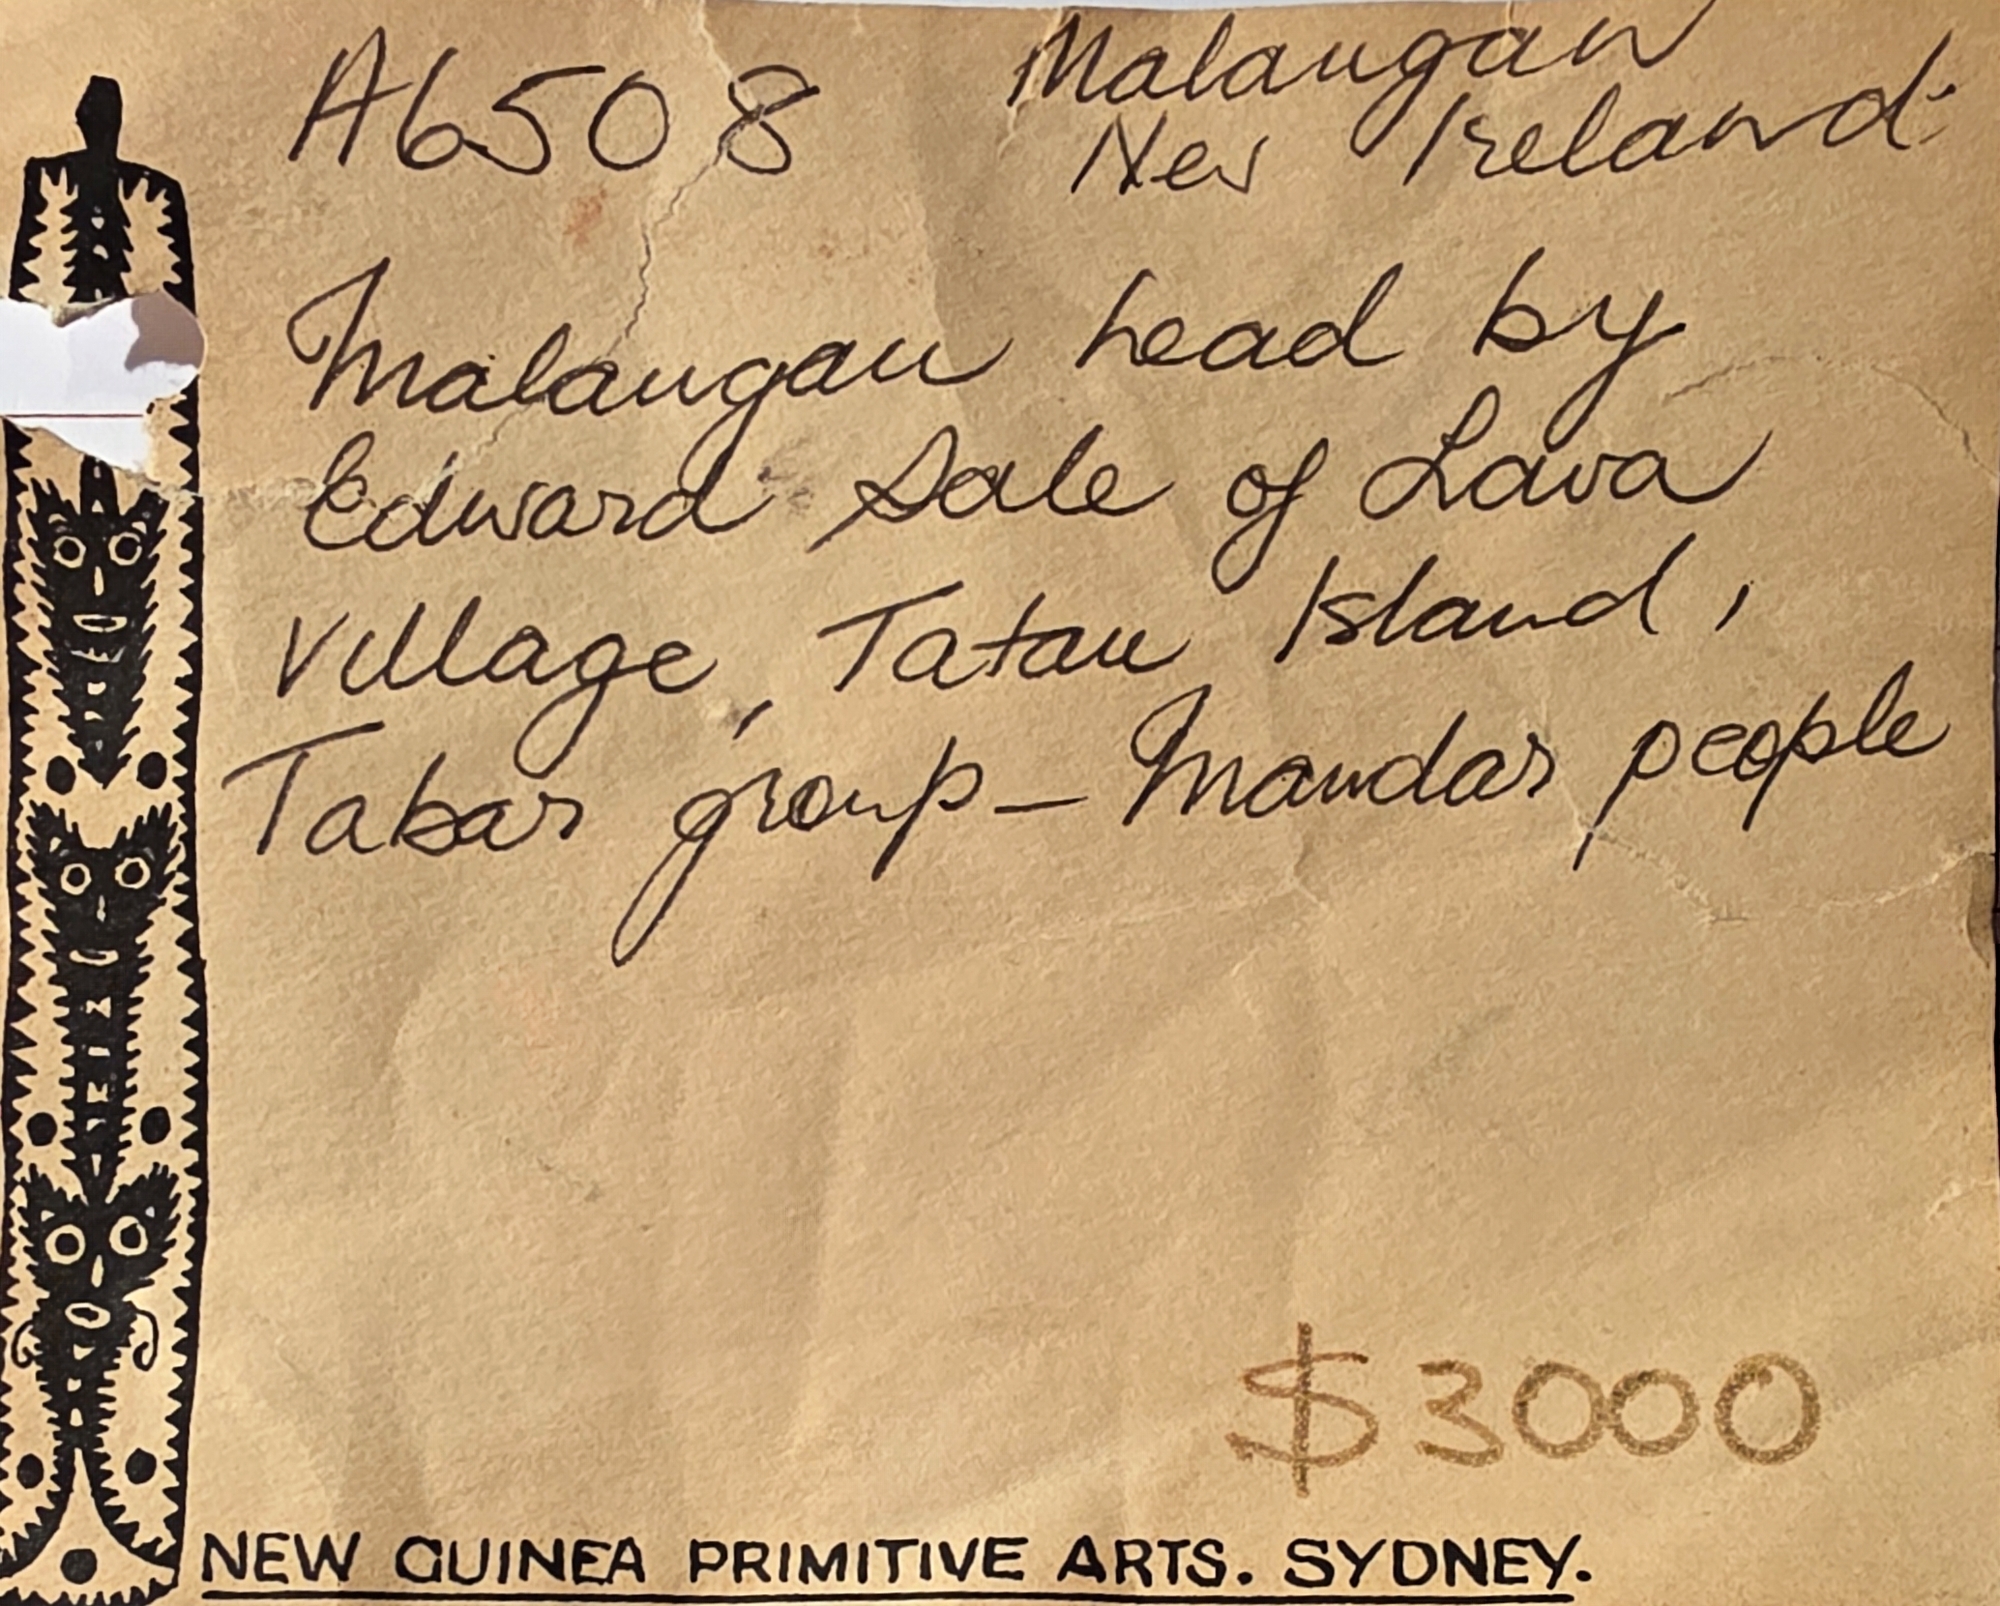 A6508
Malangan
New Ireland
Malangan head by
Edward Sale of Lava
Village, Tatau Island,
Tabar group – Mandar people
$3000
NEW GUINEA PRIMITIVE ARTS. SYDNEY.